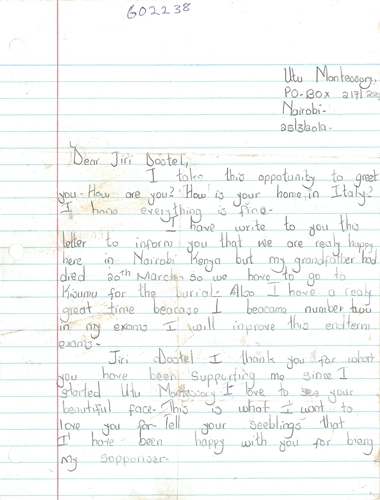 602238
Utu Montessory.
P.O-BOX 217/
Nairobi.
25/3/2019.
Dear Jiri Dostel,
I take this oppotunity to greet
you. How are you? How is your home in Italy?
I hope everything is fine.
I have write to you this
letter to inform you that we are realy happy
here in Nairobi Kenya but my grandfather had
died 20th March so we have to go to
Kisumu for the burial. Also I have a realy
great time beacase I beacame number two
in my exams I will improve this endterm
exams.
Jiri Dostel I thank you for what
you have been supporting me since I
started Utu Montessory I love to see your
beautiful face. This is what I want to
love you for Tell your seeblings that
I have been happy with you for bieng
my sopporiser.